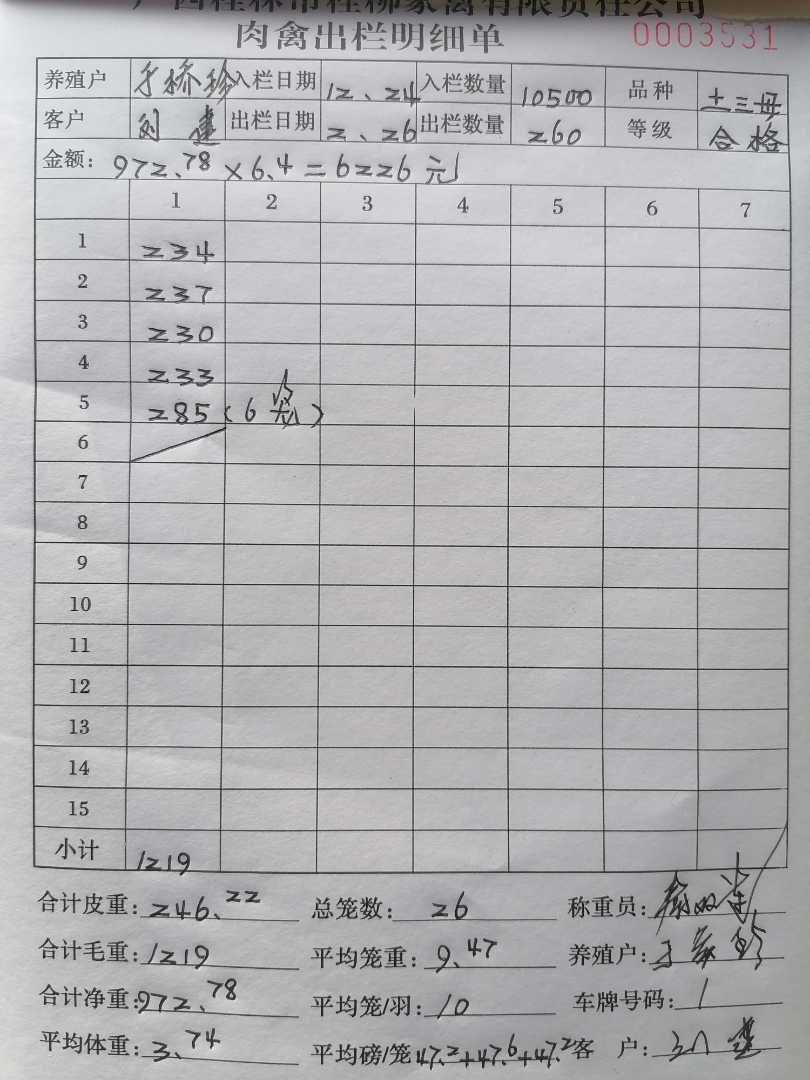 广西桂林市桂柳家禽有限责任公司
肉禽出栏明细单 0003531
养殖户 于桥珍 入栏日期 12、24 入栏数量 10500 品种 土三母
客户 刘建 出栏日期 2、26 出栏数量 260 等级 合格
金额: 972.78 × 6.4 = 6226元
1 2 3 4 5 6 7
1 234
2 237
3 230
4 233
5 285 (6笼)
6
7
8
9
10
11
12
13
14
15
小计 1219
合计皮重: 246.22 总笼数: 26 称重员:
合计毛重: 1219 平均笼重: 9.47 养殖户:
合计净重: 972.78 平均笼/羽: 10 车牌号码: /
平均体重: 3.74 平均磅/笼 47.2+47.6+47.2 客 户: 刘建